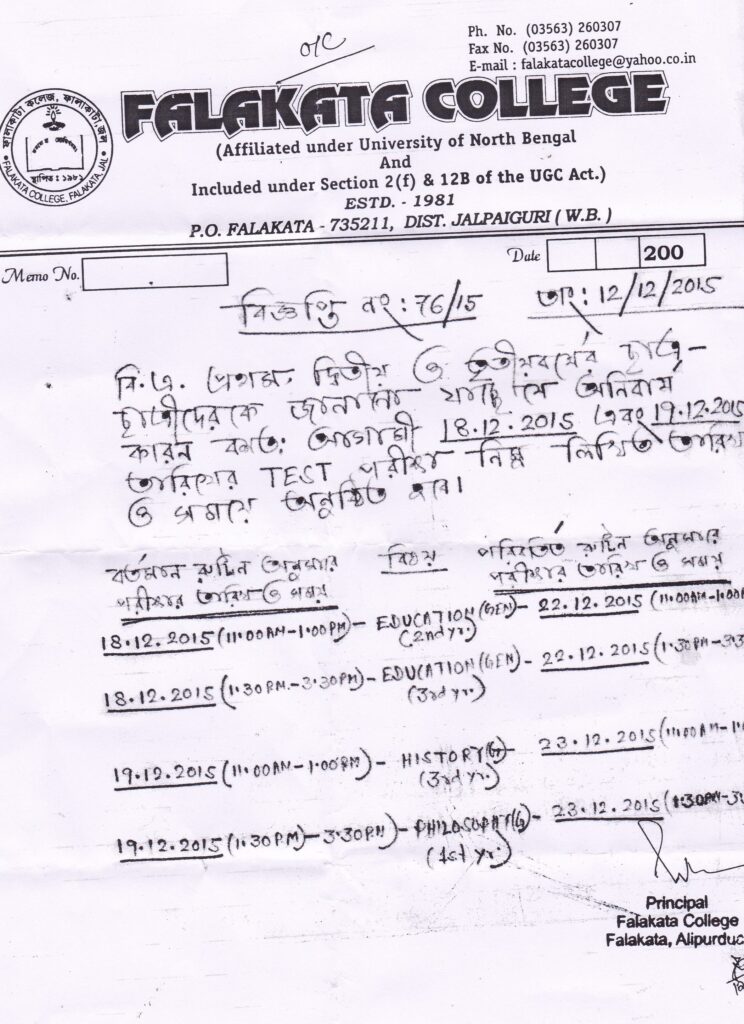 o/c
Ph. No. (03563) 260307
Fax No. (03563) 260307
E-mail : falakatacollege@yahoo.co.in
FALAKATA COLLEGE
ফালাকাটা কলেজ, ফালাকাটা, জল
স্থাপিত : ১৯৮১
FALAKATA COLLEGE, FALAKATA, JAL
(Affiliated under University of North Bengal
And
Included under Section 2(f) & 12B of the UGC Act.)
ESTD. - 1981
P.O. FALAKATA - 735211, DIST. JALPAIGURI ( W.B. )
Memo No.
Date 200
বিজ্ঞপ্তি নং : 76/15 তাং : 12/12/2015
বি.এ. প্রথম, দ্বিতীয় ও তৃতীয়বর্ষের ছাত্র-
ছাত্রীদেরকে জানানো যাচ্ছে যে অনিবার্য
কারন বশত: আগামী 18.12.2015 এবং 19.12.2015
তারিখের TEST পরীক্ষা নিম্ন লিখিত তারিখ
ও সময়ে অনুষ্ঠিত হবে।
বর্তমান রুটিন অনুসারে বিষয় পরিবর্তিত রুটিন অনুসারে
পরীক্ষার তারিখ ও সময় পরীক্ষার তারিখ ও সময়
18.12.2015 (11:00AM-1:00PM) - EDUCATION (GEN) - 22.12.2015 (11:00AM-1:00P
(2nd yr.)
18.12.2015 (1:30PM.-3:30PM) - EDUCATION (GEN) - 22.12.2015 (1:30PM-3:3
(3rd yr.)
19.12.2015 (11:00AM-1:00PM) - HISTORY(G) - 23.12.2015 (11:00AM-1:
(3rd yr.)
19.12.2015 (1:30PM)-3:30PM) - PHILOSOPHY(G) - 23.12.2015 (1:30PM-3:
(1st yr.)
Principal
Falakata College
Falakata, Alipurduc